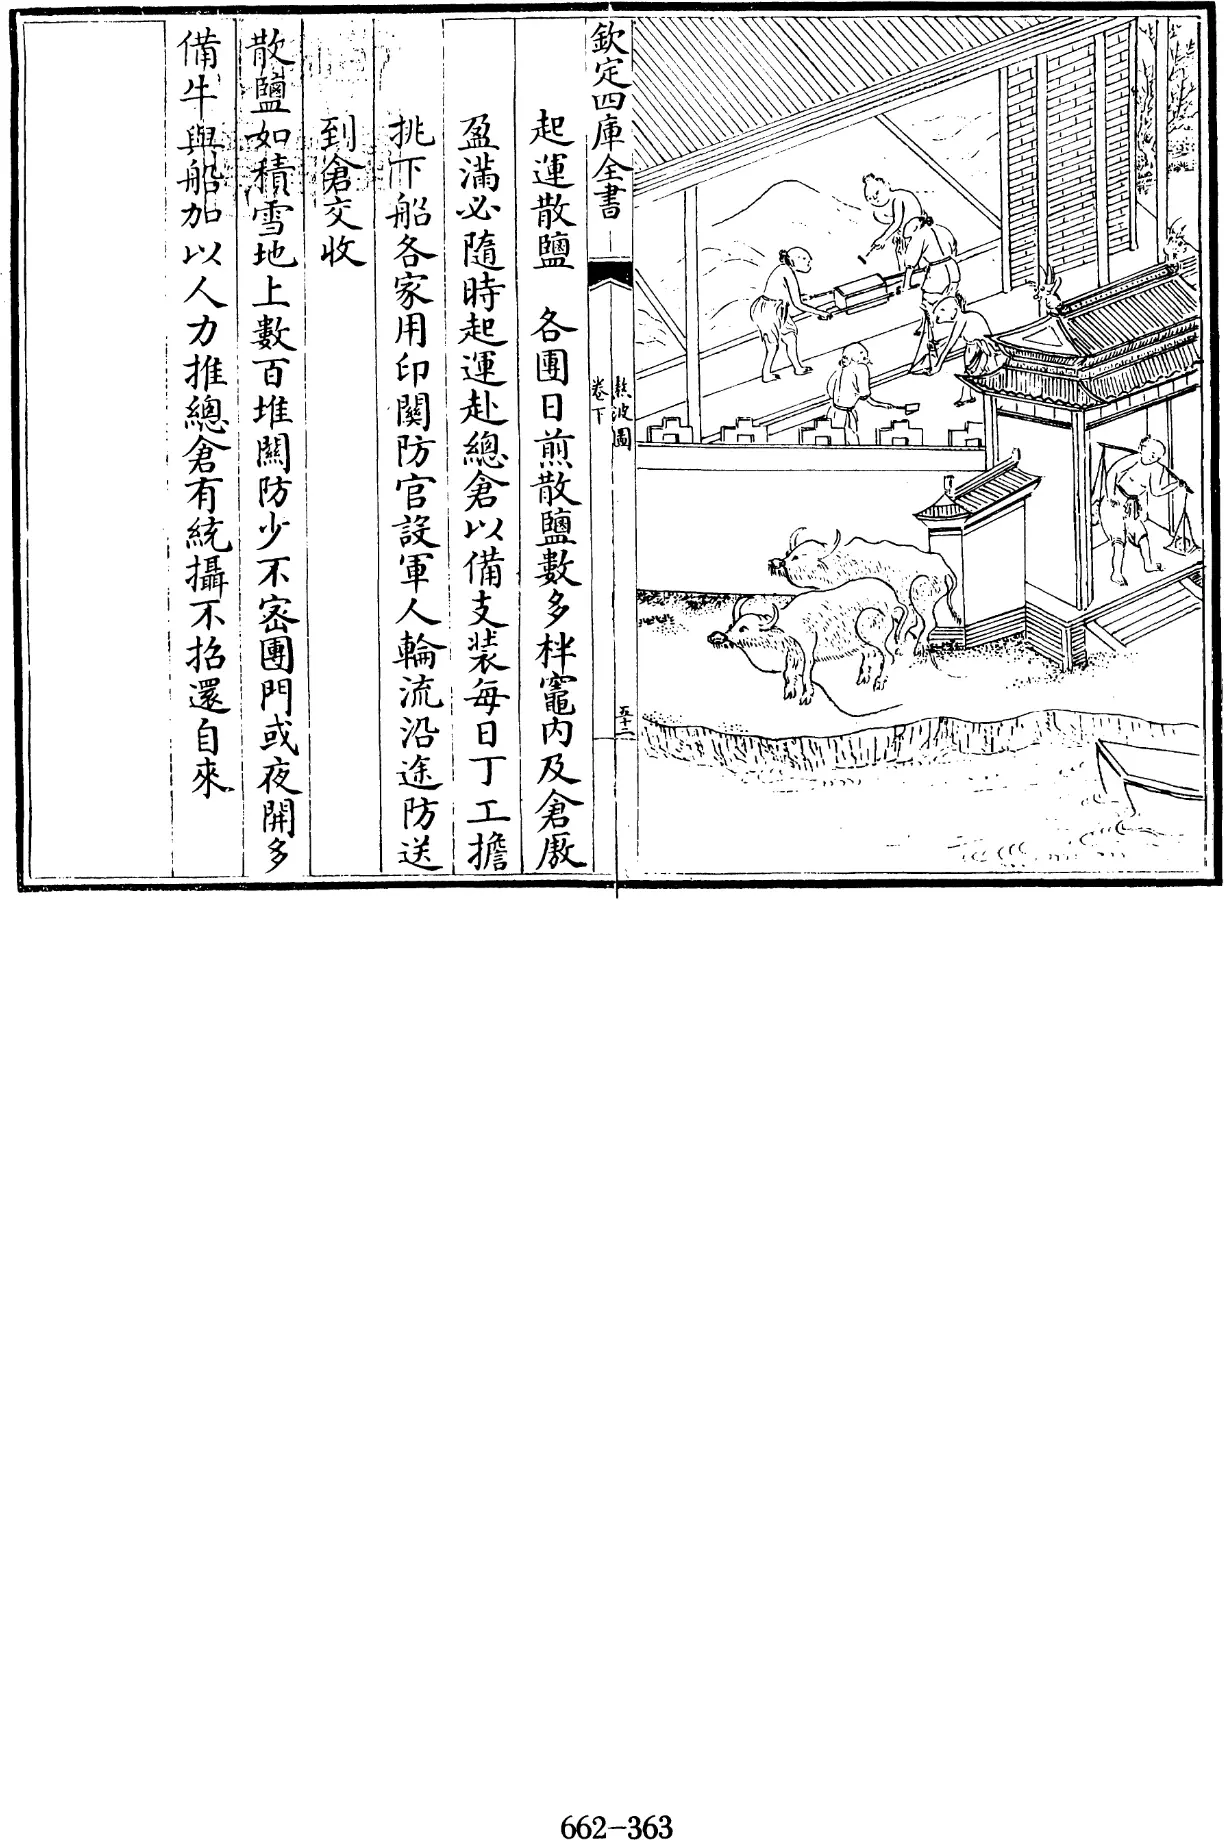 欽定四庫全書
熬波圖
卷下
五十三
起運散鹽　各團日煎散鹽數多柈竈内及倉廒
盈滿必隨時起運赴總倉以備支裝每日丁工擔
挑下船各家用印關防官設軍人輪流沿途防送
到倉交收
散鹽如積雪地上數百堆關防少不密團門或夜開多
備牛與船加以人力推總倉有統攝不招還自來
662-363